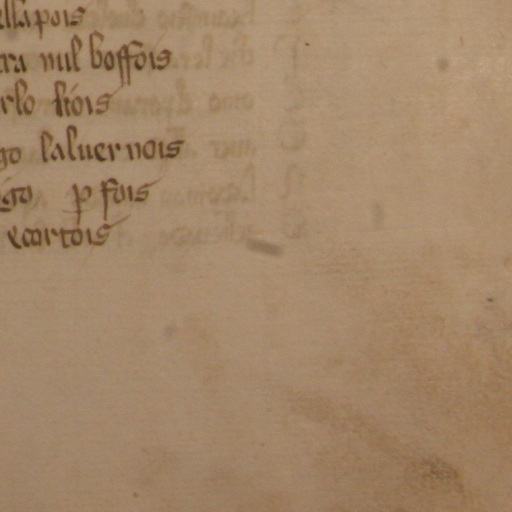 ellapois
tra nul boffois
rlo tiois
go laluernois
igo p fois
ecortois